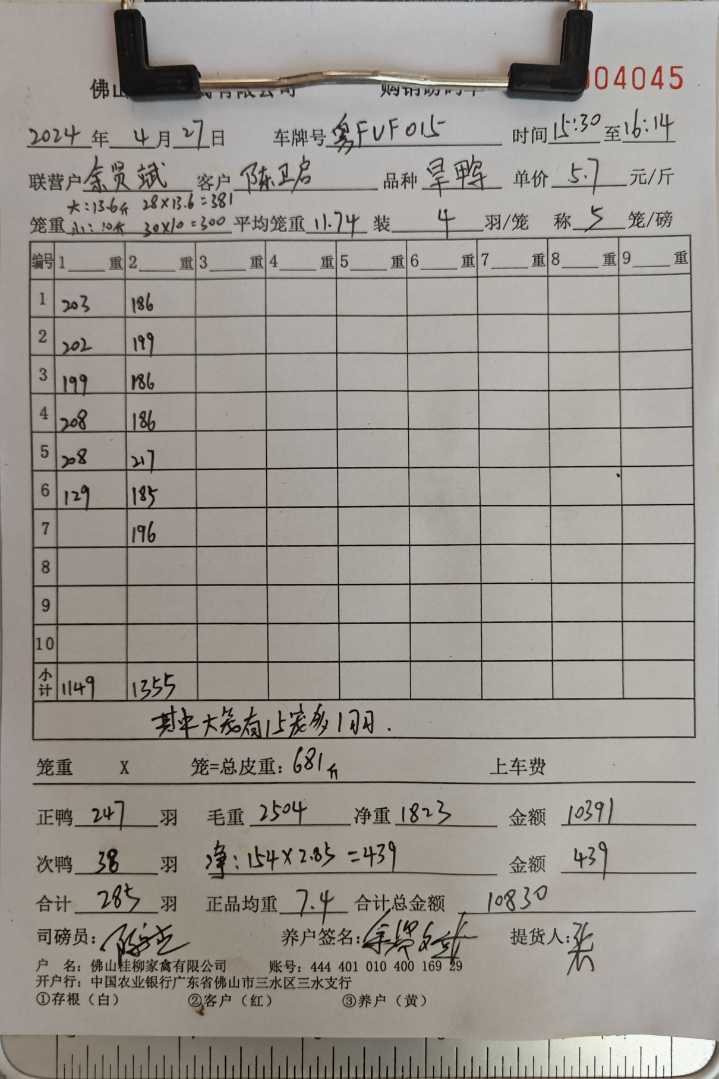 佛山 有限公司 购销磅码单 004045
2024年4月27日 车牌号 粤FUF015 时间15:30至16:14
联营户 余贤斌 客户 陈卫启 品种 旱鸭 单价 5.7 元/斤
大:13.6斤 28×13.6=381
笼重 小:10斤 30×10=300 平均笼重 11.94 装 4 羽/笼 称 5 笼/磅
编号 1 重 2 重 3 重 4 重 5 重 6 重 7 重 8 重 9 重
1 203 186
2 202 199
3 199 186
4 208 186
5 208 217
6 129 185
7 196
8
9
10
小计 1149 1355
其中大笼有15笼多1羽.
笼重 X 笼=总皮重: 681斤 上车费
正鸭 247 羽 毛重 2504 净重 1823 金额 10391
次鸭 38 羽 净:154×2.85=439 金额 439
合计 285 羽 正品均重 7.4 合计总金额 10830
司磅员: 养户签名:余贤斌 提货人:
户 名: 佛山桂柳家禽有限公司 账号: 444 401 010 400 169 29
开户行: 中国农业银行广东省佛山市三水区三水支行
①存根（白） ②客户（红） ③养户（黄）